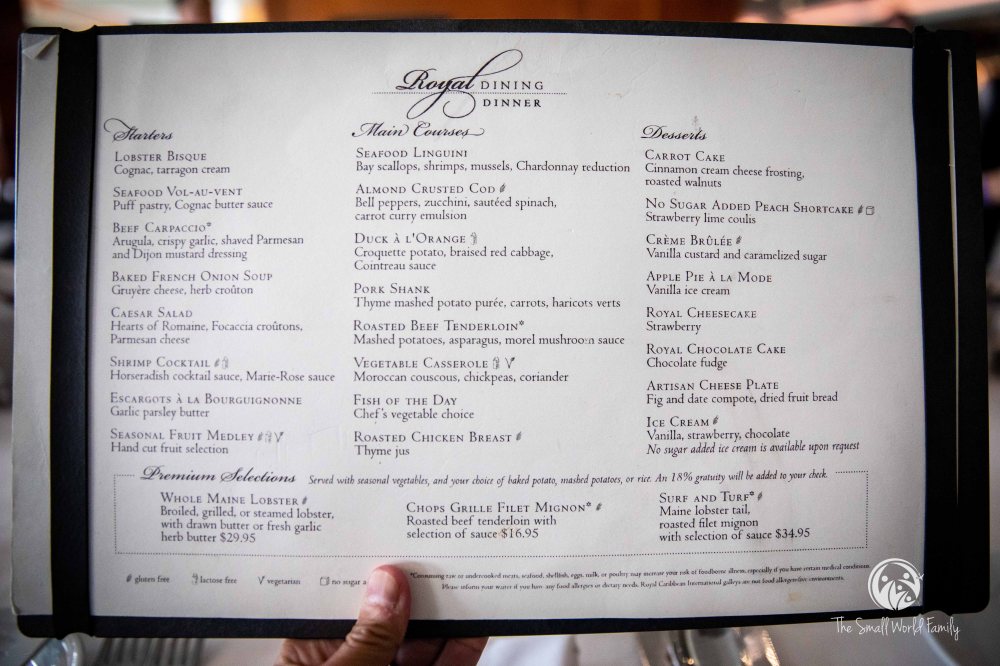 Royal DINING
DINNER
Starters
LOBSTER BISQUE
Cognac, tarragon cream
SEAFOOD VOL-AU-VENT
Puff pastry, Cognac butter sauce
BEEF CARPACCIO*
Arugula, crispy garlic, shaved Parmesan
and Dijon mustard dressing
BAKED FRENCH ONION SOUP
Gruyère cheese, herb croûton
CAESAR SALAD
Hearts of Romaine, Focaccia croûtons,
Parmesan cheese
SHRIMP COCKTAIL
Horseradish cocktail sauce, Marie-Rose sauce
ESCARGOTS À LA BOURGUIGNONNE
Garlic parsley butter
SEASONAL FRUIT MEDLEY
Hand cut fruit selection
Main Courses
SEAFOOD LINGUINI
Bay scallops, shrimps, mussels, Chardonnay reduction
ALMOND CRUSTED COD
Bell peppers, zucchini, sautéed spinach,
carrot curry emulsion
DUCK À L'ORANGE
Croquette potato, braised red cabbage,
Cointreau sauce
PORK SHANK
Thyme mashed potato purée, carrots, haricots verts
ROASTED BEEF TENDERLOIN*
Mashed potatoes, asparagus, morel mushroom sauce
VEGETABLE CASSEROLE
Moroccan couscous, chickpeas, coriander
FISH OF THE DAY
Chef's vegetable choice
ROASTED CHICKEN BREAST
Thyme jus
Desserts
CARROT CAKE
Cinnamon cream cheese frosting,
roasted walnuts
NO SUGAR ADDED PEACH SHORTCAKE
Strawberry lime coulis
CRÈME BRÛLÉE
Vanilla custard and caramelized sugar
APPLE PIE À LA MODE
Vanilla ice cream
ROYAL CHEESECAKE
Strawberry
ROYAL CHOCOLATE CAKE
Chocolate fudge
ARTISAN CHEESE PLATE
Fig and date compote, dried fruit bread
ICE CREAM
Vanilla, strawberry, chocolate
No sugar added ice cream is available upon request
Premium Selections Served with seasonal vegetables, and your choice of baked potato, mashed potatoes, or rice. An 18% gratuity will be added to your check.
WHOLE MAINE LOBSTER
Broiled, grilled, or steamed lobster,
with drawn butter or fresh garlic
herb butter $29.95
CHOPS GRILLE FILET MIGNON*
Roasted beef tenderloin with
selection of sauce $16.95
SURF AND TURF*
Maine lobster tail,
roasted filet mignon
with selection of sauce $34.95
gluten free lactose free vegetarian no sugar a
*Consuming raw or undercooked meats, seafood, shellfish, eggs, milk, or poultry may increase your risk of foodborne illness, especially if you have certain medical conditions.
Please inform your waiter if you have any food allergies or dietary needs. Royal Caribbean International galleys are not food allergen-free environments.
The Small World Family